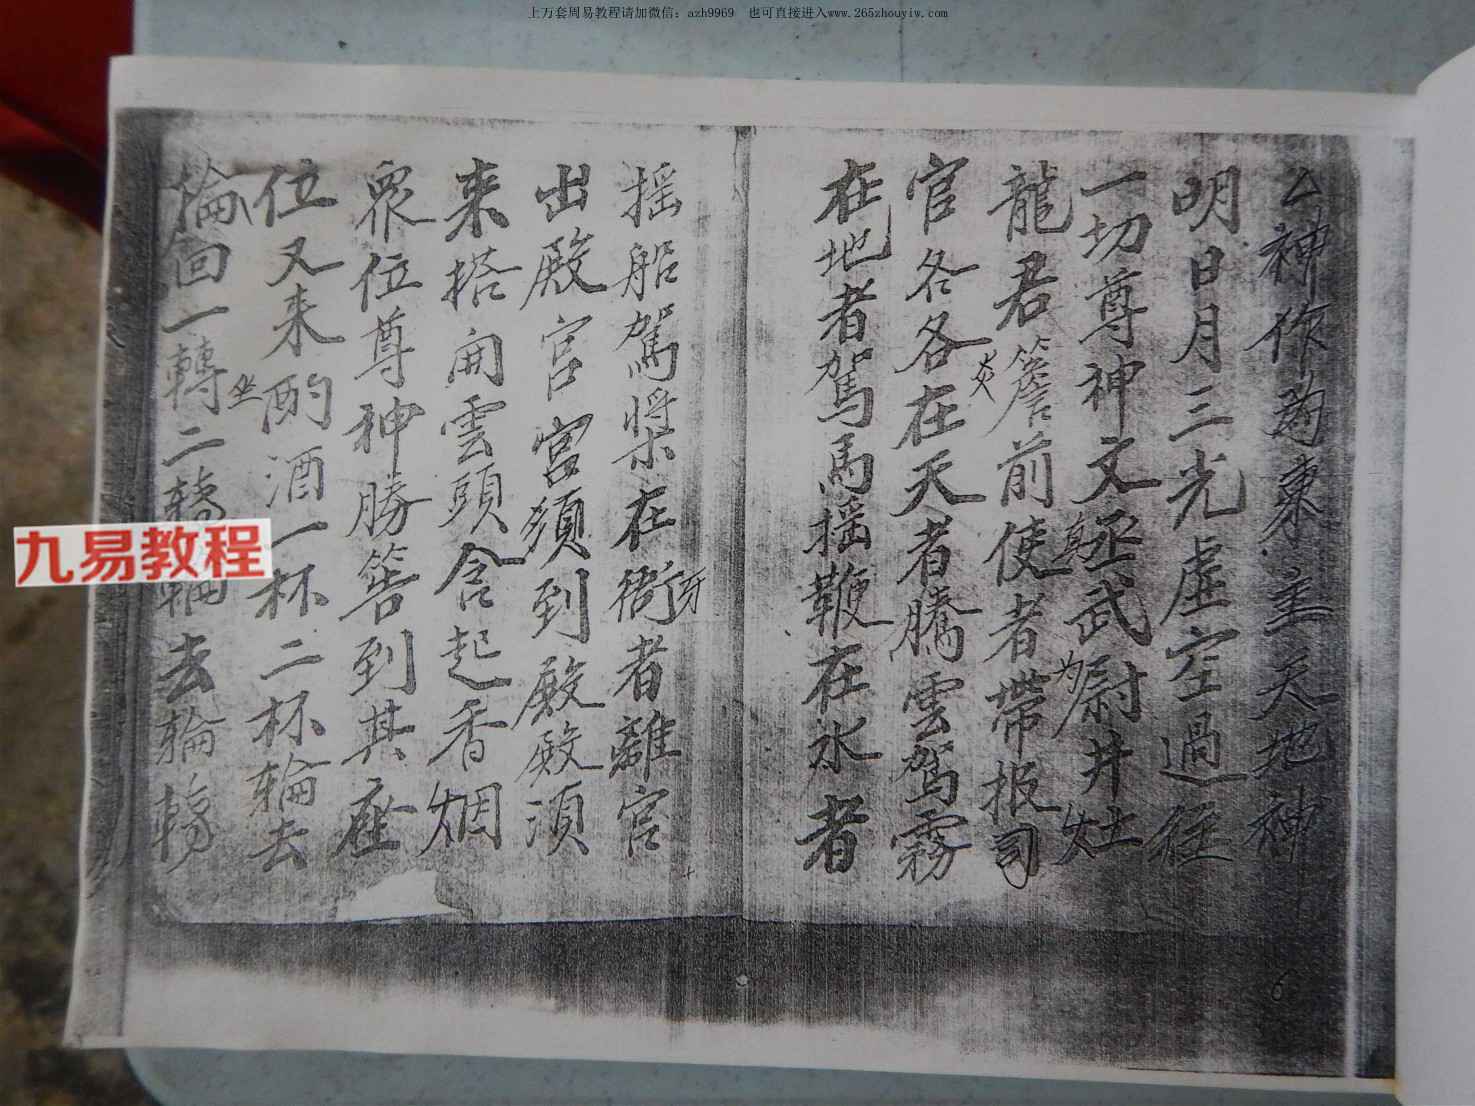 上万套周易教程请加微信：azh9969　也可直接进入www.265zhouyiw.com
神作 東 主天地神
明日月三光虛空過往
一切尊神文丞武尉井灶
龍君簷前使者帶报司
官各各在天者騰雲駕霧
在地者駕馬揺鞭在水者
揺船駕槳在衙者離宮
牙
出殿宮宮須到殿殿須
来搭開雲頭含起香烟
眾位尊神勝筶到其座
位又来酌酒一杯二杯輪去
坐
輪回一轉二轉 輪去輪轉
九易教程
6